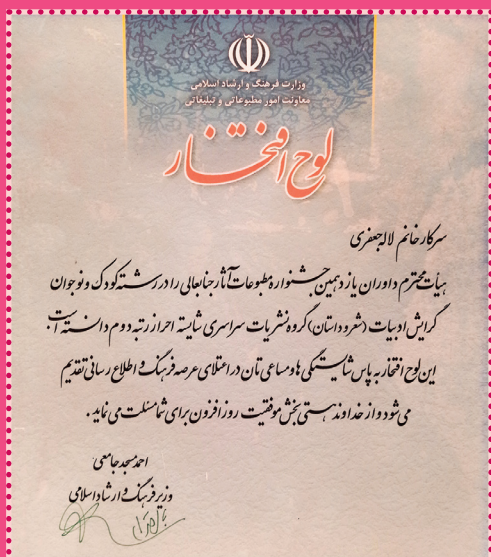 وزارت فرهنگ و ارشاد اسلامی
معاونت امور مطبوعاتی و تبلیغاتی
لوح افتخار
سرکار خانم لاله جعفری
هیات محترم داوران یازدهمین جشنواره مطبوعات آثار جنابعالی را در رشته کودک و نوجوان
گرایش ادبیات (شعر و داستان) گروه نشریات سراسری شایسته احراز رتبه دوم دانسته است
این لوح افتخار به پاس شایستگی ها و مساعی تان در اعتلای عرصه فرهنگ و اطلاع رسانی تقدیم
می شود و از خداوند هستی بخش موفقیت روز افزون برای شما مسئلت می نماید.
احمد مسجد جامعی
وزیر فرهنگ و ارشاد اسلامی